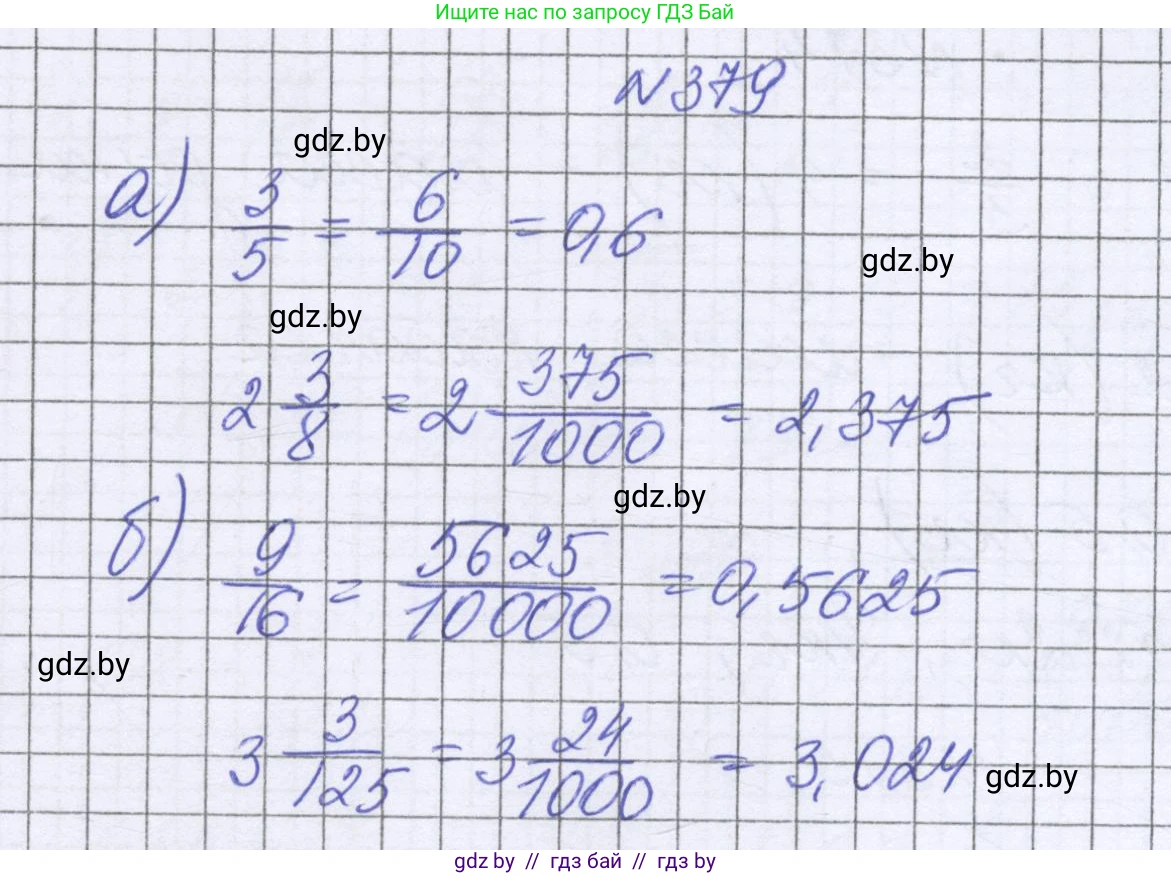 Ищите нас по запросу ГДЗ Бай
N379
gdz.by
а) 3/5 = 6/10 = 0,6
gdz.by
gdz.by
2 3/8 = 2 375/1000 = 2,375
gdz.by
б) 9/16 = 5625/10000 = 0,5625
gdz.by
3 3/125 = 3 24/1000 = 3,024
gdz.by
gdz.by // гдз бай // гдз by